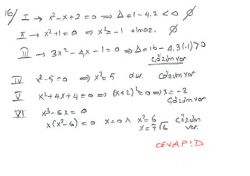 16) I → x²-x+2=0 ⇒ Δ=1-4.2<0 ∅
II → x²+1=0 ⇒ x²=-1 olmaz. ∅
III → 3x²-4x-1=0 ⇒ Δ=16-4.3(-1)>0
Çözüm var
IV x²-5=0 ⇒ x²=5 Çözüm var.
V x²+4x+4=0 ⇒ (x+2)²=0 ⇒ x=-2
Çözüm var
VI x³-6x=0
x(x²-6)=0 x=0 ∧ x²=6 Çözüm
x=∓√6 var.
CEVAP: D